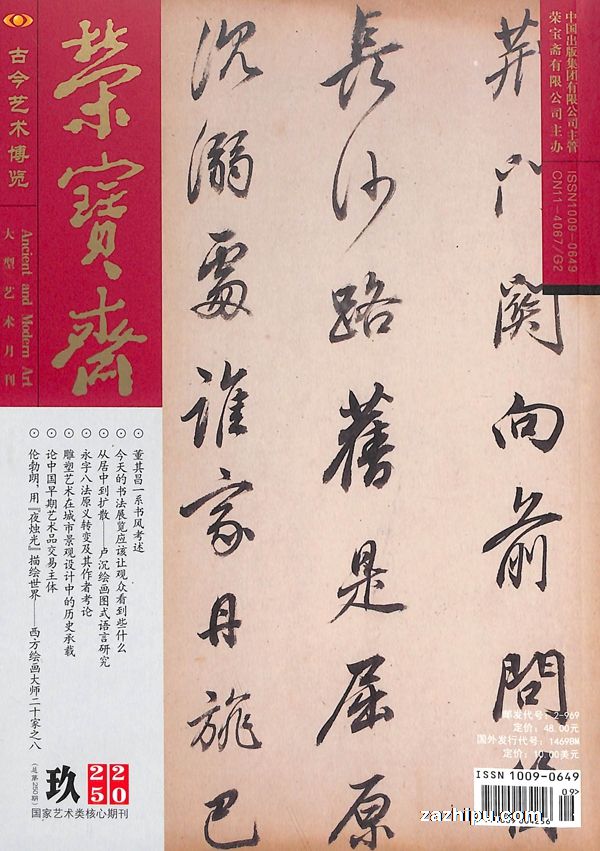 荣寶齋
古今艺术博览
Ancient and Modern Art
大型艺术月刊
中国出版集团有限公司主管
荣宝斋有限公司主办
ISSN1009-0649
CN11-4067/G2
荆门關向前問
長沙路舊是屈原
沉溺處誰家丹旐巴
⊙董其昌一系书风考述
⊙今天的书法展览应该让观众看到些什么
⊙从居中到扩散——卢沉绘画图式语言研究
⊙永字八法原义转变及其作者考论
⊙雕塑艺术在城市景观设计中的历史承载
⊙论中国早期艺术品交易主体
⊙伦勃朗,用『夜烛光』描绘世界——西方绘画大师二十家之八
2025
玖
国家艺术类核心期刊
邮发代号：2-969
定价：48.00元
国外发行代号：1469BM
定价：10.00美元
ISSN 1009-0649
09>
zazhipu.com